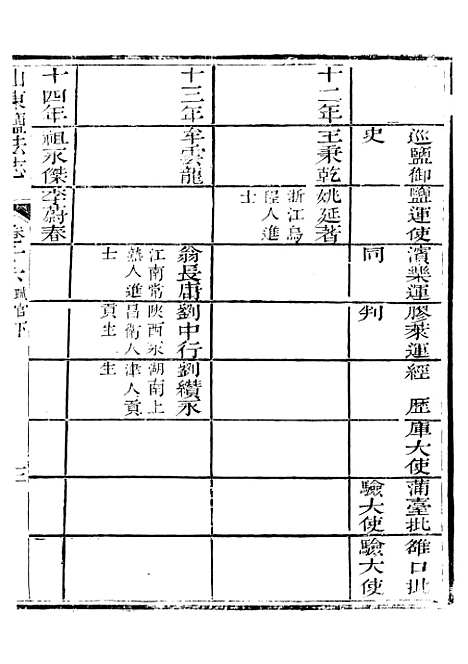 巡鹽御史
鹽運使
濱樂運同
膠萊運判
經歷
庫大使
蒲臺批驗大使
雒口批驗大使
十二年
王秉乾
姚延著
浙江烏程人進士
十三年
牟雲龍
翁長庸
江南常熟人進士
劉中行
陝西永昌衛人貢生
劉纘永
湖南上津人貢生
十四年
祖永傑
李蔚春
山東鹽法志
卷二十六 職官下
三